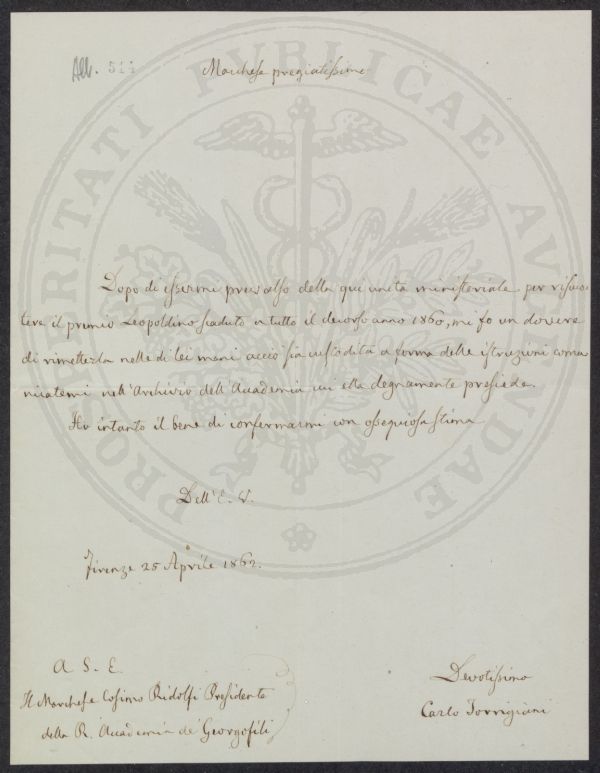 Alb. 511
Marchese pregiatissimo
Dopo di essermi prevalso della qui unita ministeriale per riscuo-
tere il premio Leopoldino scaduto a tutto il decorso anno 1860, mi fo un dovere
di rimetterla nelle di lei mani acciò sia custodita a forma delle istruzioni comu
nicatemi nell'Archivio dell'Accademia cui ella degnamente presiede.
Ho intanto il bene di confermarmi con ossequiosa stima
Dell'E. V.
Firenze 25 Aprile 1862.
A S. E.
Il Marchese Cosimo Ridolfi Presidente
della R. Accademia de' Georgofili
Devotissimo
Carlo Torrigiani
PROSPERITATI PVBLICAE AVGENDAE